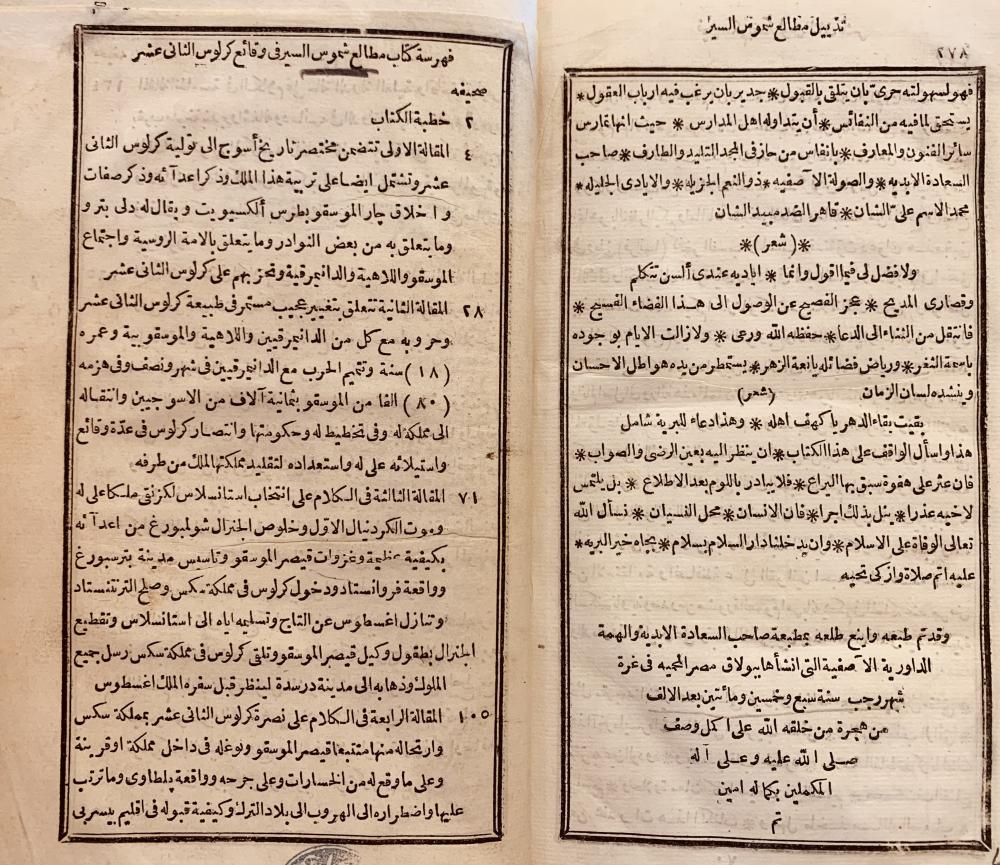 تذييل مطالع شموس السير
٨٧٢
فهو لسهولته حرى بان يتلقى بالقبول * جدير بان يرغب فيه ارباب العقول *
يستحق لما فيه من النفائس * أن يتداوله اهل المدارس * حيث انها تمارس
سائر الفنون والمعارف * بانفاس من حاز فى المجد التليد والطارف * صاحب
السعادة الابديه * والصولة الآصفيه * ذو النعم الجزيله * والايادى الجليله *
محمد الاسم علىّ الشان * قاهر الضد مبيد الشان
*(شعر)*
ولا فضل لى فيما اقول وانما * اياديه عندى ألسن تتكلم
وقصارى المديح * عجز الفصيح عن الوصول الى هذا الفضاء الفسيح *
فانتقل من الثناء الى الدعا * حفظه الله ورعى * ولا زالت الايام بوجوده
باسمة الثغر * ورياض فضائله يانعة الزهر * يستمطر من يده هواطل الاحسان
وينشده لسان الزمان (شعر)
بقيت بقاء الدهر يا كهف اهله * وهذا دعاء للبرية شامل
هذا واسأل الواقف على هذا الكتاب * ان ينظر اليه بعين الرضى والصواب *
فان عثر على هفوة سبق بها اليراع * فلا يبادر باللوم بعد الاطلاع * بل يلتمس
لاخيه عذرا * ينل بذلك اجرا * فان الانسان * محل النسيان * نسأل الله
تعالى الوفاة على الاسلام * وان يدخلنا دار السلام بسلام * بجاه خير البريه *
عليه اتم صلاة وازكى تحيه
وقد تم طبعه واينع طلعه بمطبعة صاحب السعادة الابدية والهمة
الداورية الآصفية التى انشأها ببولاق مصر المحميه فى غرة
شهر رجب سنة سبع وخمسين ومائتين بعد الالف
من هجرة من خلقه الله على اكمل وصف
صلى الله عليه وعلى آله
المكملين بكماله امين
تم
فهرسة كتاب مطالع شموس السير فى وقائع كرلوس الثانى عشر
صحيفه
٢ خطبة الكتاب
٤ المقالة الاولى تتضمن مختصر تاريخ أسوج الى تولية كرلوس الثانى
عشر وتشتمل ايضا على تربية هذا الملك وذكر اعدآئه وذكر صفات
واخلاق چار الموسقو بطرس ألكسيويت ويقال له دلى بترو
وما يتعلق به من بعض النوادر وما يتعلق بالامة الروسية واجتماع
الموسقو واللاهية والدانيمرقية وتحزبهم على كرلوس الثانى عشر
٢٨ المقالة الثانية تتعلق بتغيير عجيب مستمر فى طبيعة كرلوس الثانى عشر
وحروبه مع كل من الدانيمرقيين واللاهية والموسقوبية وعمره
(١٨) سنة وتتميم الحرب مع الدانيمرقيين فى شهر ونصف وفى هزمه
(٨٠) الفا من الموسقو بثمانية آلاف من الاسوجيين وانتقاله
الى مملكة له وفى تخطيط له وحكومتها وانتصار كرلوس فى عدّة وقائع
واستيلائه على له واستعداده لتقليد مملكتها لملك من طرفه
٧١ المقالة الثالثة فى الكلام على انتخاب استانسلاس لكزنتى ملكا على له
وموت الكردنال الاوّل وخلوص الجنرال شولمبورغ من اعدآئه
بكيفية عظيمة وغزوات قيصر الموسقو وتاسيس مدينة بترسبورغ
وواقعة فروانستاد ودخول كرلوس فى مملكة سكس وصلح الترتنستاد
وتنازل اغسطوس عن التاج وتسليمه اياه الى استانسلاس وتقطيع
الجنرال بطقول وكيل قيصر الموسقو وتلقى كرلوس فى مملكة سكس رسل جميع
الملوك وذهابه الى مدينة درسدة لينظر قبل سفره الملك اغسطوس
١٠٥ المقالة الرابعة فى الكلام على نصرة كرلوس الثانى عشر بمملكة سكس
وارتحاله منها متتبعا قيصر الموسقو وتوغله فى داخل مملكة اوقرينة
وعلى ما وقع له من الخسارات وعلى جرحه وواقعة پلطاوى وما ترتب
عليها واضطراره الى الهروب الى بلاد الترك وكيفية قبوله فى اقليم بيسربى